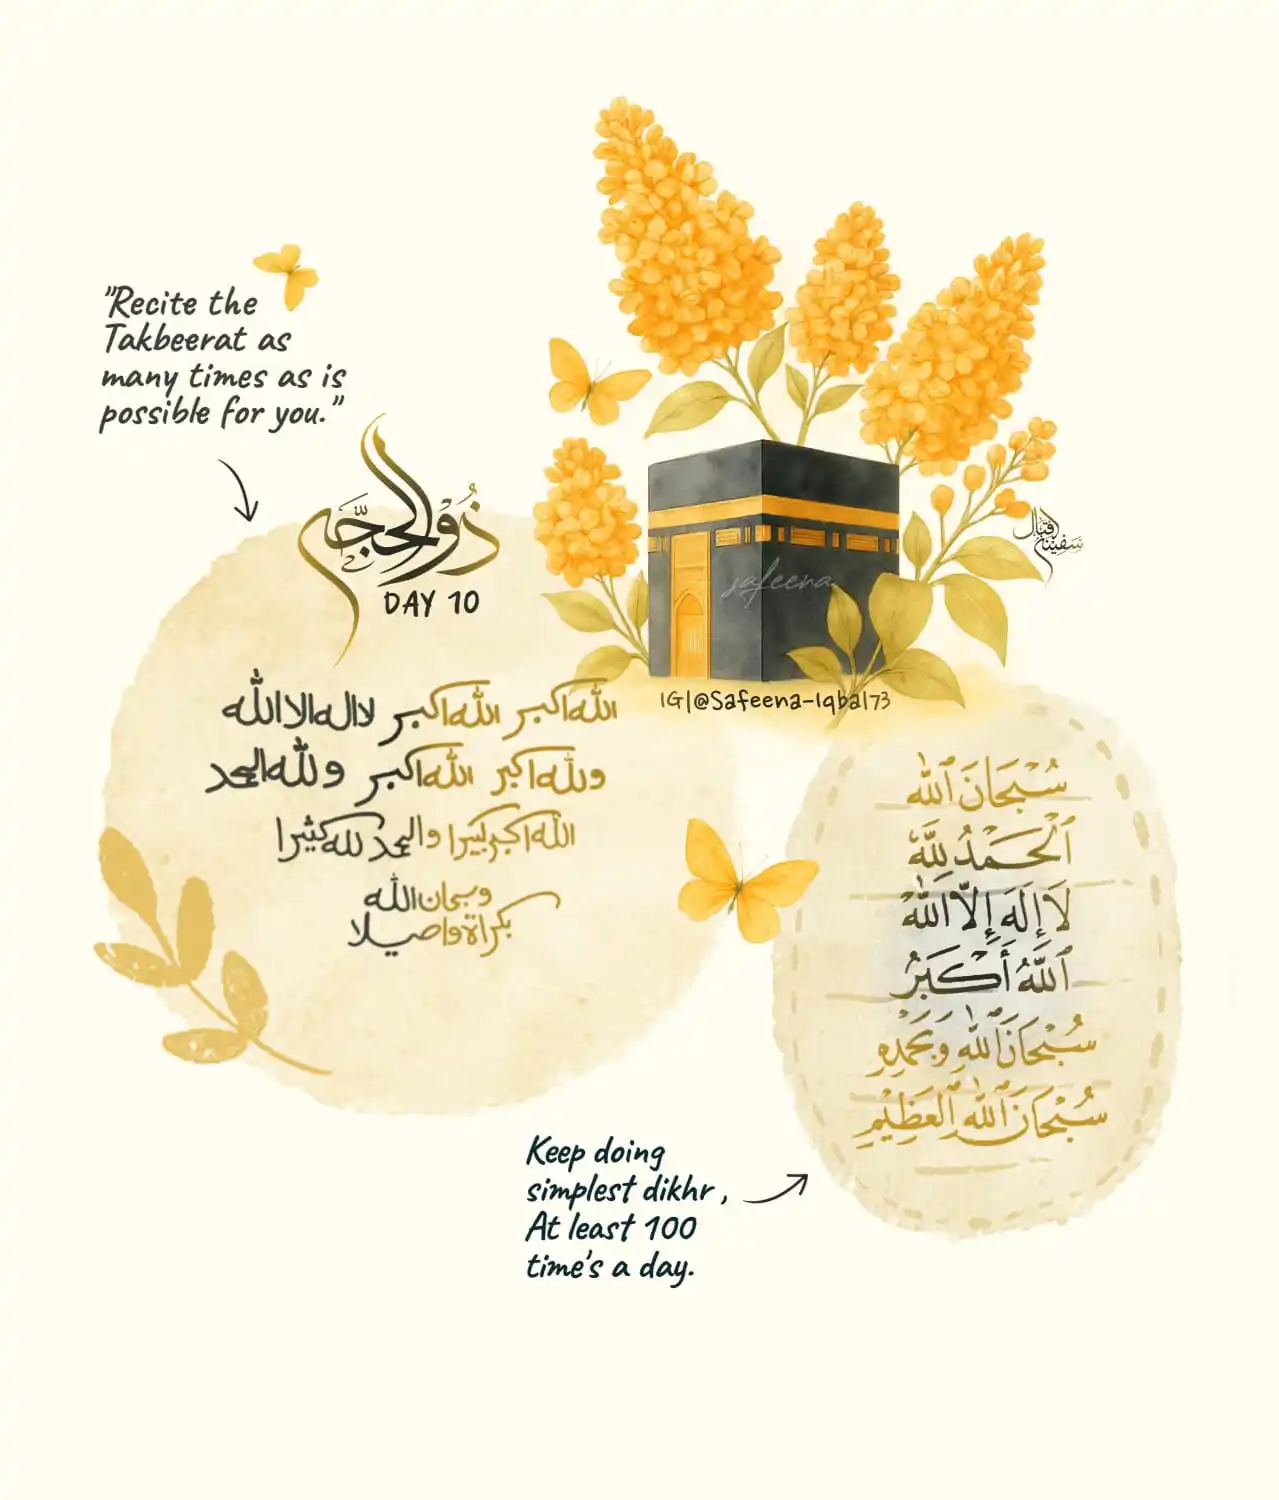 "Recite the
Takbeerat as
many times as is
possible for you."
ذُو الحجّہ
DAY 10
الله اكبر الله اكبر لا اله الا الله
ولله اكبر الله اكبر ولله الحمد
الله اكبر كبيرا والحمد لله كثيرا
وسبحان الله
بكراة واصيلا
safeena
سفینہ اقبال
IG|@Safeena-Iqbal73
سُبْحَانَ ٱللّٰه
ٱلْحَمْدُ لِلَّهِ
لَا إِلَهَ إِلَّا اللّٰه
ٱللَّهُ أَكْبَرُ
سُبْحَانَ ٱللّٰهِ وَبِحَمْدِهِ
سُبْحَانَ ٱللّٰهِ ٱلْعَظِيْمِ
Keep doing
simplest dikhr ,
At least 100
time's a day.